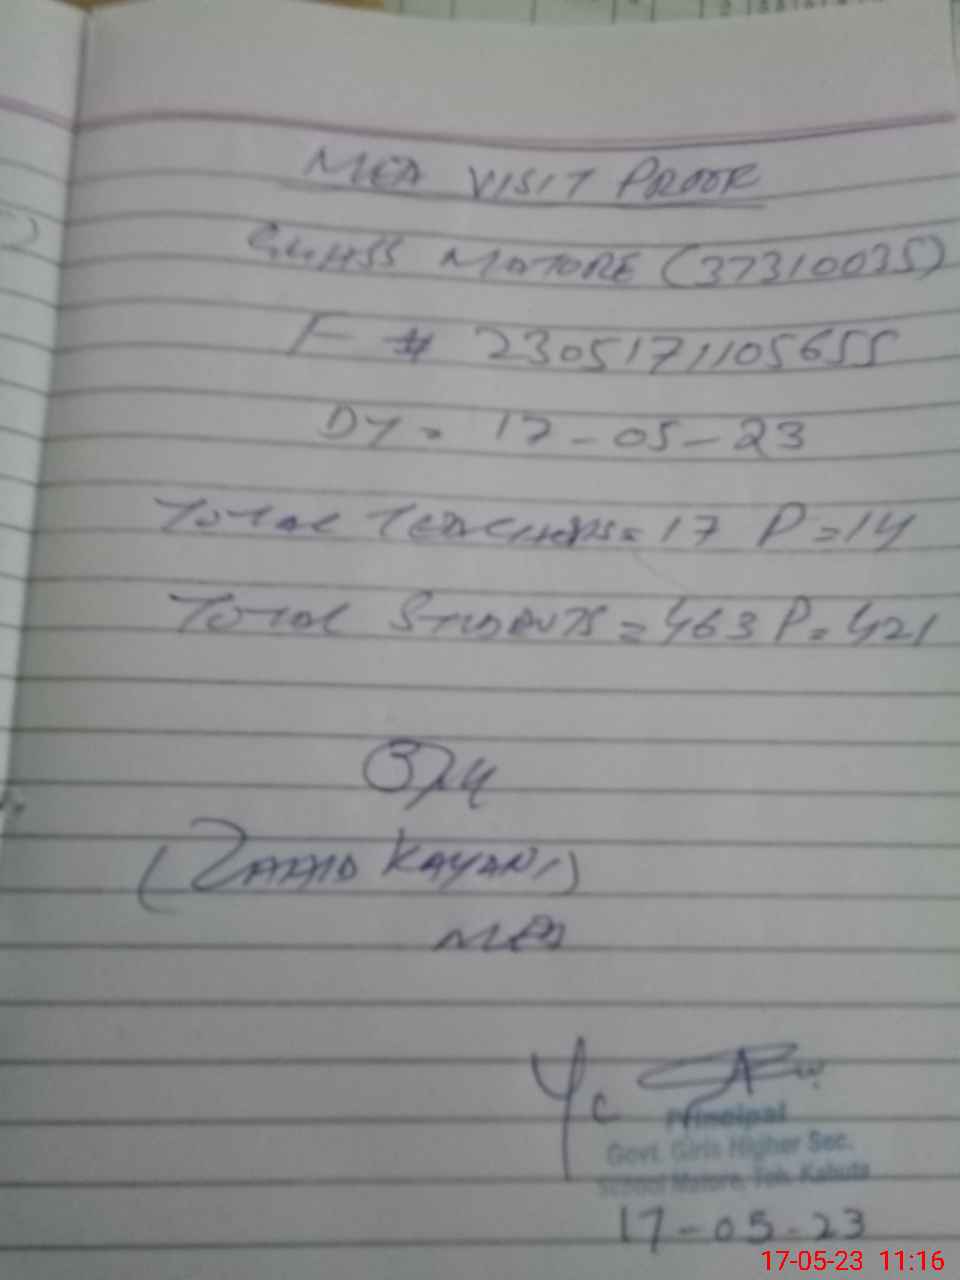 MEA VISIT PROOF
GGHSS MATORE (37310035)
F # 2305171105655
DY = 17-05-23
Total Teachers = 17 P = 14
Total Students = 463 P = 421
(ZAHID KAYANI)
MEA
Principal
Govt. Girls Higher Sec.
School Matore, Teh. Kahuta
17-05-23
17-05-23 11:16